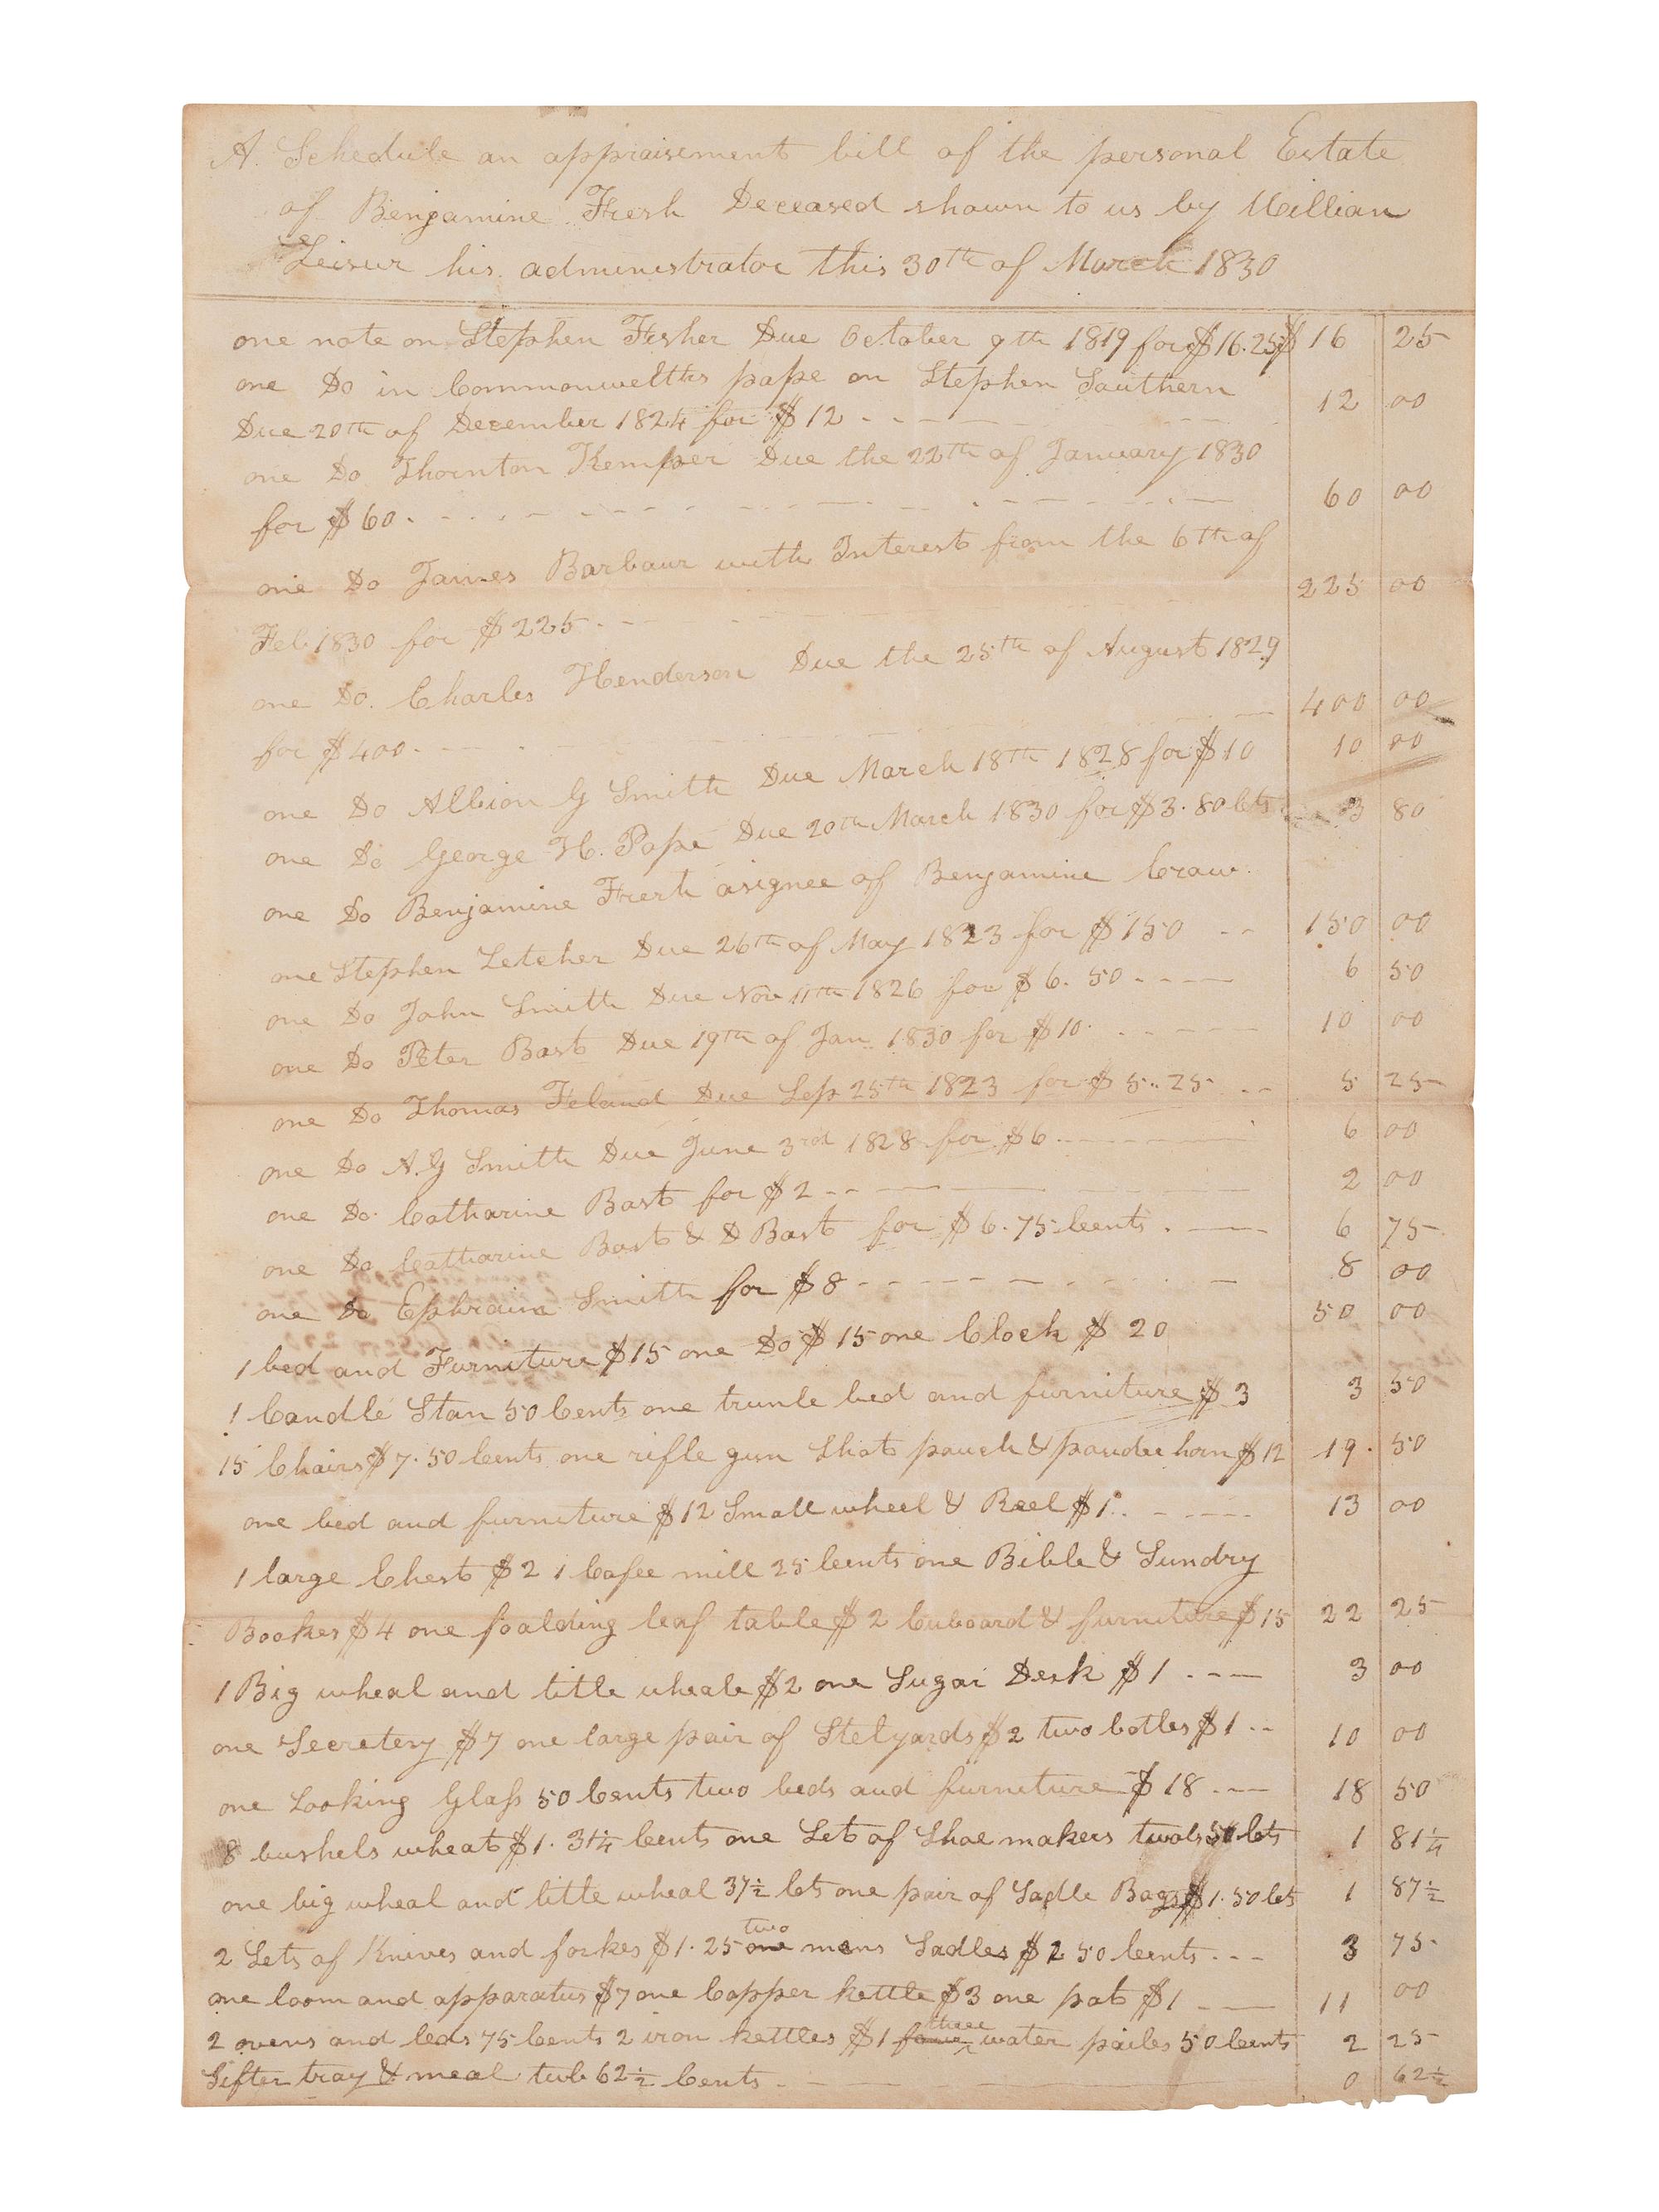 A. Schedule an appraisement bill of the personal Estate
of Benjamine Fresh Deceased shown to us by William
Leisur his administrator this 30th of March 1830
one note on Stephen Fisher Due October 9th 1819 for $16.25 $ 16 25
one Do in Commonwelths pape on Stephen Southern
Due 20th of December 1824 for $12 12 00
one Do Thornton Kemper Due the 22th of January 1830
for $60 60 00
one Do James Barbour with Interest from the 6th of
Feb 1830 for $225 225 00
one Do. Charles Henderson Due the 25th of August 1829
for $400 400 00
one Do Albion G Smith Due March 18th 1828 for $10 10 00
one Do George H. Pope Due 20th March 1830 for $3.80 Cts 3 80
one Do Benjamine Fresh asignee of Benjamine Craw.
one Stephen Letcher Due 26th of May 1823 for $150 150 00
one Do John Smith Due Nov 11th 1826 for $6.50 6 50
one Do Peter Bast Due 19th of Jan 1830 for $10 10 00
one Do Thomas Feland Due Sep 25th 1823 for $5..25 5 25
one Do A.G Smith Due June 3rd 1828 for $6 6 00
one Do Catharine Bast for $2 2 00
one Do Catharine Bast & D Bast for $6.75 Cents 6 75
one Do Ephraim Smith for $8 8 00
1 bed and Furniture $15 one Do $15 one Clock $20 50 00
1 Candle Stan 50 Cents one trunle bed and furniture $3 3 50
15 Chairs $7.50 Cents one rifle gun Shot pouch & pouder horn $12 19. 50
one bed and furniture $12 Small wheel & Reel $1 13 00
1 large Chest $2 1 Cafee mill 25 Cents one Bible & Sundry
Bookes $4 one foalding leaf table $2 Cuboard & furniture $15 22 25
1 Big wheal and little wheale $2 one Sugar Desk $1 3 00
one Secretery $7 one large pair of Stelyards $2 two botles $1 10 00
one Looking Glass 50 Cents two beds and furniture $18 18 50
8 bushels wheat $1.31¼ Cents one Set of Shoe makers twols 50 Cts 1 81¼
one big wheal and little wheal 37½ Cts one pair of Sadle Bags $1.50 Cts 1 87½
2 Sets of Knives and forkes $1.25 one two mens Sadles $2 50 Cents 3 75
one loom and apparatus $7 one Copper kettle $3 one pot $1 11 00
2 ovens and leds 75 Cents 2 iron kettles $1 three water pailes 50 Cents 2 25
Sifter tray & meal tub 62½ Cents 0 62½